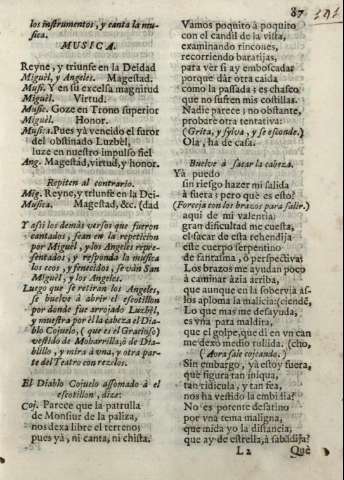 87
los instrumentos, y canta la mu-
sica.
MUSICA.
Reyne, y triunfe en la Deidad
Miguèl, y Angeles. Magestad.
Musi. Y en su excelsa magnitud
Miguèl. Virtud.
Music. Goze en Trono superior
Miguèl. Honor.
Musica. Pues yà vencido el furor
del obstinado Luzbèl,
luze en nuestro impulso fiel
Ang. Magestàd, virtud, y honor.
Repiten al contrario.
Mig. Reyne, y triunfe en la Dei-
Musica. Magestad, &c. (dad
Y assi los demàs versos que fueron
cantados, sean en la repeticion
por Miguèl, y los Angeles repre-
sentados, y responda la musica
los ecos, y fenecidos, se vàn San
Miguèl, y los Angeles.
Luego que se retiran los Angeles,
se buelve à abrir el escotillon
por donde fue arrojado Luzbèl,
y muestra por èl la cabeza el Dia-
blo Cojuelo, (que es el Gracioso)
vestido de Moharrilla, ò de Dia-
blillo, y mira à vna, y otra par-
te del Teatro con rezelos.
El Diablo Cojuelo assomado à el
escotillon, dize:
Coj. Parece que la patrulla
de Monsiur de la paliza,
nos dexa libre el terreno;
pues yà, ni canta, ni chista.
Vamos poquito à poquito
con el candil de la vista,
examinando rincones,
recorriendo baratijas,
para ver si ay emboscadas
porque dàr otra caida
como la passada; es chasco
que no sufren mis costillas.
Nadie parece; no obstante,
probarè otra tentativa:
(Grita, y sylva, y se esconde.)
Ola, ha de casa.
Buelve à sacar la cabeza.
Ya puedo
sin riesgo hazer mi salida
à fuera; pero què es esto?
(Forceja con los brazos para salir.)
aqui de mi valentia:
gran dificultad me cuesta,
el sacar de esta rehendija
este cuerpo serpentino
de fantasma, ò perspectiva!
Los brazos me ayudan poco
à caminar àzia arriba,
que aunque en la sobervia às-
los aploma la malicia: (ciendẽ,
Lo que mas me desayuda,
es vna para maldita,
que el golpe, que dì en vn can
me dexò medio tullida. (cho,
(Aora sale cojeando.)
Sin embargo, yà estoy fuera,
què figura tan iniqua,
tan ridicula, y tan fea,
nos ha vestido la embidia?
No es porente desatino
por vna tema maligna,
que mida yo la distancia,
que ay de estrella, à sabãdija?
L 2 Què